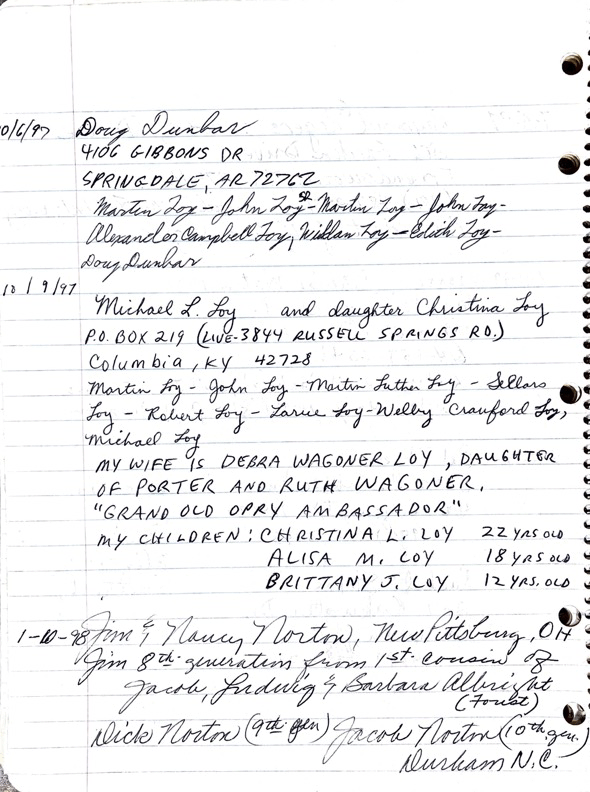 10/6/97 Doug Dunbar
4106 GIBBONS DR
SPRINGDALE, AR 72762
Martin Loy - John Loy SR - Martin Loy - John Loy -
Alexander Campbell Loy, Willan Loy - Edith Loy -
Doug Dunbar
10/9/97
Michael L. Loy and daughter Christina Loy
P.O. BOX 219 (LIVE-3844 RUSSELL SPRINGS RD.)
Columbia, KY 42728
Martin Loy - John Loy - Martin Luther Loy - Sellars
Loy - Robert Loy - Larue Loy - Welby Crauford Loy,
Michael Loy
MY WIFE IS DEBRA WAGONER LOY, DAUGHTER
OF PORTER AND RUTH WAGONER.
"GRAND OLD OPRY AMBASSADOR"
MY CHILDREN: CHRISTINA L. LOY 22 YRS OLD
ALISA M. LOY 18 YRS OLD
BRITTANY J. LOY 12 YRS. OLD
1-10-98 Jim & Nancy Norton, New Pittsburg, OH
Jim 8th generation from 1st cousin of
Jacob, Ludwig & Barbara Albright
(Foust)
Dick Norton (9th gen) Jacob Norton (10th gen.)
Durham N.C.